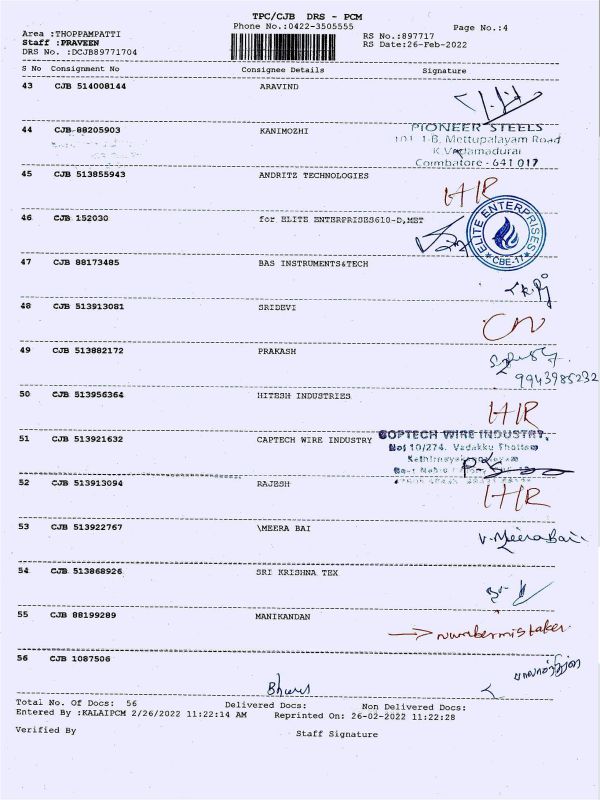 TPC/CJB DRS - PCM
Phone No.:0422-3505555
Page No.:4
Area :THOPPAMPATTI
RS No.:897717
Staff :PRAVEEN
RS Date:26-Feb-2022
DRS No. :DCJB89771704
S No Consignment No Consignee Details Signature
43 CJB 514008144 ARAVIND
44 CJB 88205903 KANIMOZHI
PIONEER STEELS
101, 1-B, Mettupalayam Road
K.Vadamadurai
Coimbatore - 641 017
45 CJB 513855943 ANDRITZ TECHNOLOGIES
46 CJB 152030 for ELITE ENTERPRISES610-D,MET
ELITE ENTERPRISES
CBE-17
47 CJB 88173485 BAS INSTRUMENTS&TECH
48 CJB 513913081 SRIDEVI
CN
49 CJB 513882172 PRAKASH
9943985232
50 CJB 513956364 HITESH INDUSTRIES
51 CJB 513921632 CAPTECH WIRE INDUSTRY
COPTECH WIRE INDUSTRY,
No: 10/274, Vadakku Thottam
52 CJB 513913094 RAJESH
53 CJB 513922767 \MEERA BAI
V.Meera Bai
54 CJB 513868926 SRI KRISHNA TEX
55 CJB 88199289 MANIKANDAN
number mistake
56 CJB 1087506
Total No. Of Docs: 56 Delivered Docs: Non Delivered Docs:
Entered By :KALAIPCM 2/26/2022 11:22:14 AM Reprinted On: 26-02-2022 11:22:28
Verified By Staff Signature